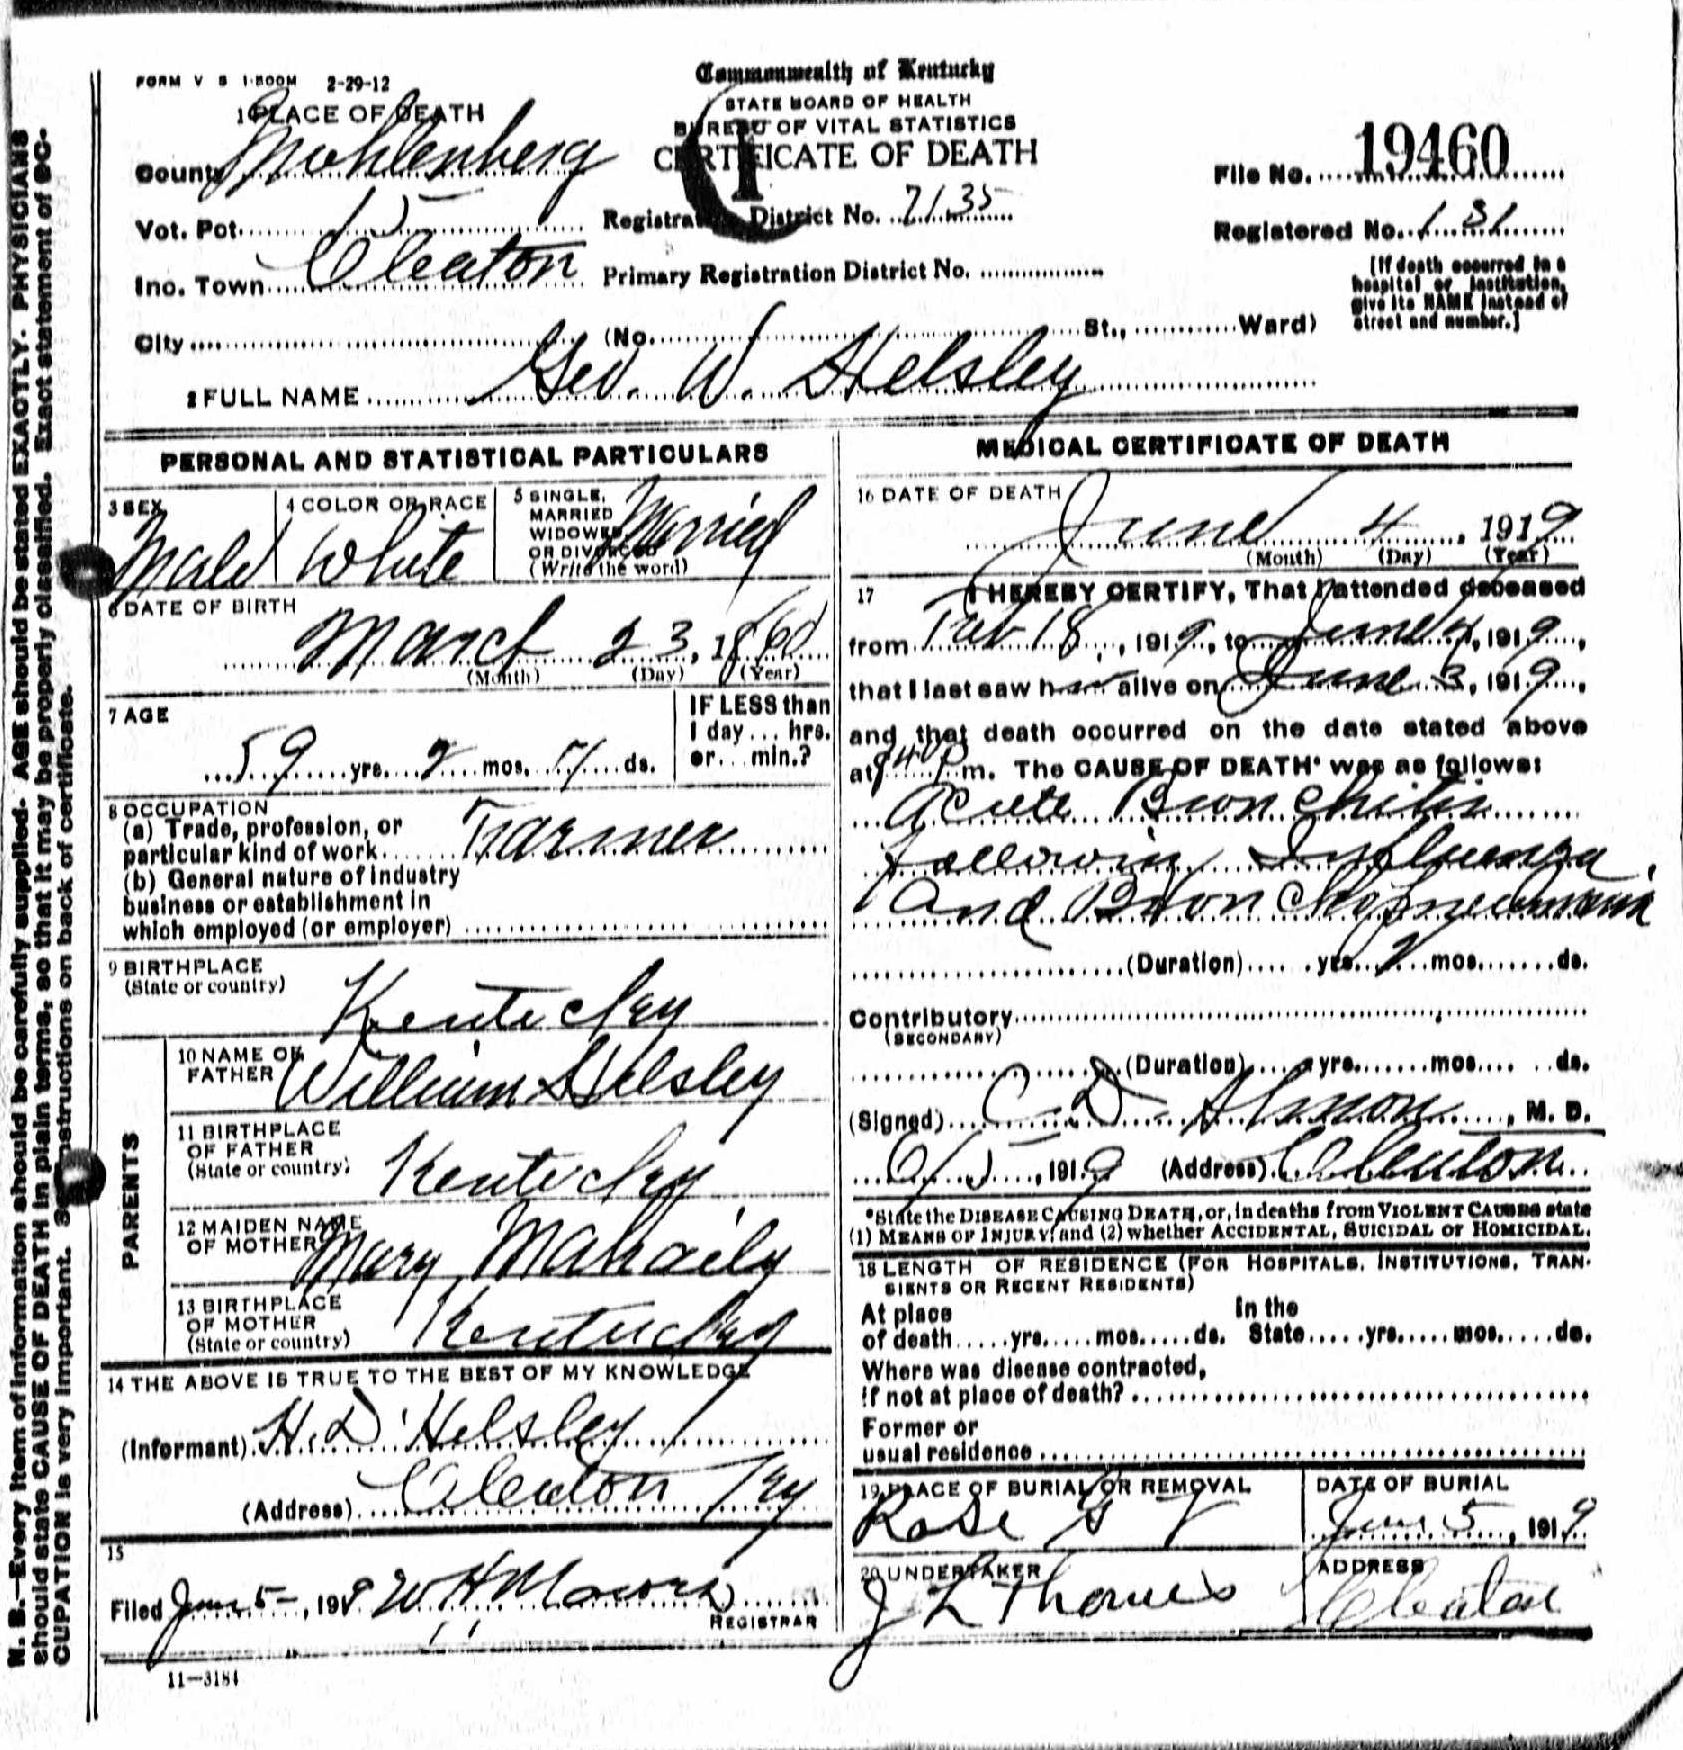 FORM V S 1-500M 2-29-12
Commonwealth of Kentucky
STATE BOARD OF HEALTH
BUREAU OF VITAL STATISTICS
CERTIFICATE OF DEATH
1 PLACE OF DEATH
County Muhlenberg
File No. 19460
Vot. Pct. 15
Registration District No. 7135
Registered No. 131
Inc. Town Cleaton
Primary Registration District No.
[If death occurred in a hospital or institution, give its NAME instead of street and number.]
City (No. St., Ward)
2 FULL NAME Geo. W. Helsley
PERSONAL AND STATISTICAL PARTICULARS
3 SEX Male
4 COLOR OR RACE White
5 SINGLE, MARRIED WIDOWED OR DIVORCED (Write the word) Married
6 DATE OF BIRTH
March 23, 1860
(Month) (Day) (Year)
7 AGE
59 yrs. 2 mos. 11 ds.
IF LESS than 1 day... hrs. or... min.?
8 OCCUPATION
(a) Trade, profession, or
particular kind of work Farmer
(b) General nature of industry
business or establishment in
which employed (or employer)
9 BIRTHPLACE
(State or country)
Kentucky
PARENTS
10 NAME OF
FATHER William Helsley
11 BIRTHPLACE
OF FATHER
(State or country) Kentucky
12 MAIDEN NAME
OF MOTHER Mary
13 BIRTHPLACE
OF MOTHER
(State or country) Kentucky
14 THE ABOVE IS TRUE TO THE BEST OF MY KNOWLEDGE
(Informant) H. D. Helsley
(Address) Cleaton Ky
15
Filed June 5, 191
REGISTRAR
11—3184
MEDICAL CERTIFICATE OF DEATH
16 DATE OF DEATH
June 4, 1919
(Month) (Day) (Year)
17 I HEREBY CERTIFY, That I attended deceased
from Feb 18, 1919, to June 4, 1919,
that I last saw him alive on June 3, 1919,
and that death occurred on the date stated above
at m. The CAUSE OF DEATH* was as follows:
Acute Bronchitis
following Influenza
and Bronchopneumonia
(Duration) yrs. 2 mos. ds.
Contributory
(SECONDARY)
(Duration) yrs. mos. ds.
(Signed) C. D. , M. D.
6/5, 1919 (Address) Cleaton
*State the DISEASE CAUSING DEATH, or, in deaths from VIOLENT CAUSES state
(1) MEANS OF INJURY; and (2) whether ACCIDENTAL, SUICIDAL or HOMICIDAL.
18 LENGTH OF RESIDENCE (FOR HOSPITALS, INSTITUTIONS, TRAN-
SIENTS OR RECENT RESIDENTS)
At place In the
of death yrs. mos. ds. State yrs. mos. ds.
Where was disease contracted,
if not at place of death?
Former or
usual residence
19 PLACE OF BURIAL OR REMOVAL
Rose
DATE OF BURIAL
June 5, 1919
20 UNDERTAKER
J L Thomas
ADDRESS
Cleaton
N. B.—Every item of information should be carefully supplied. AGE should be stated EXACTLY. PHYSICIANS
should state CAUSE OF DEATH in plain terms, so that it may be properly classified. Exact statement of OC-
CUPATION is very important. See instructions on back of certificate.